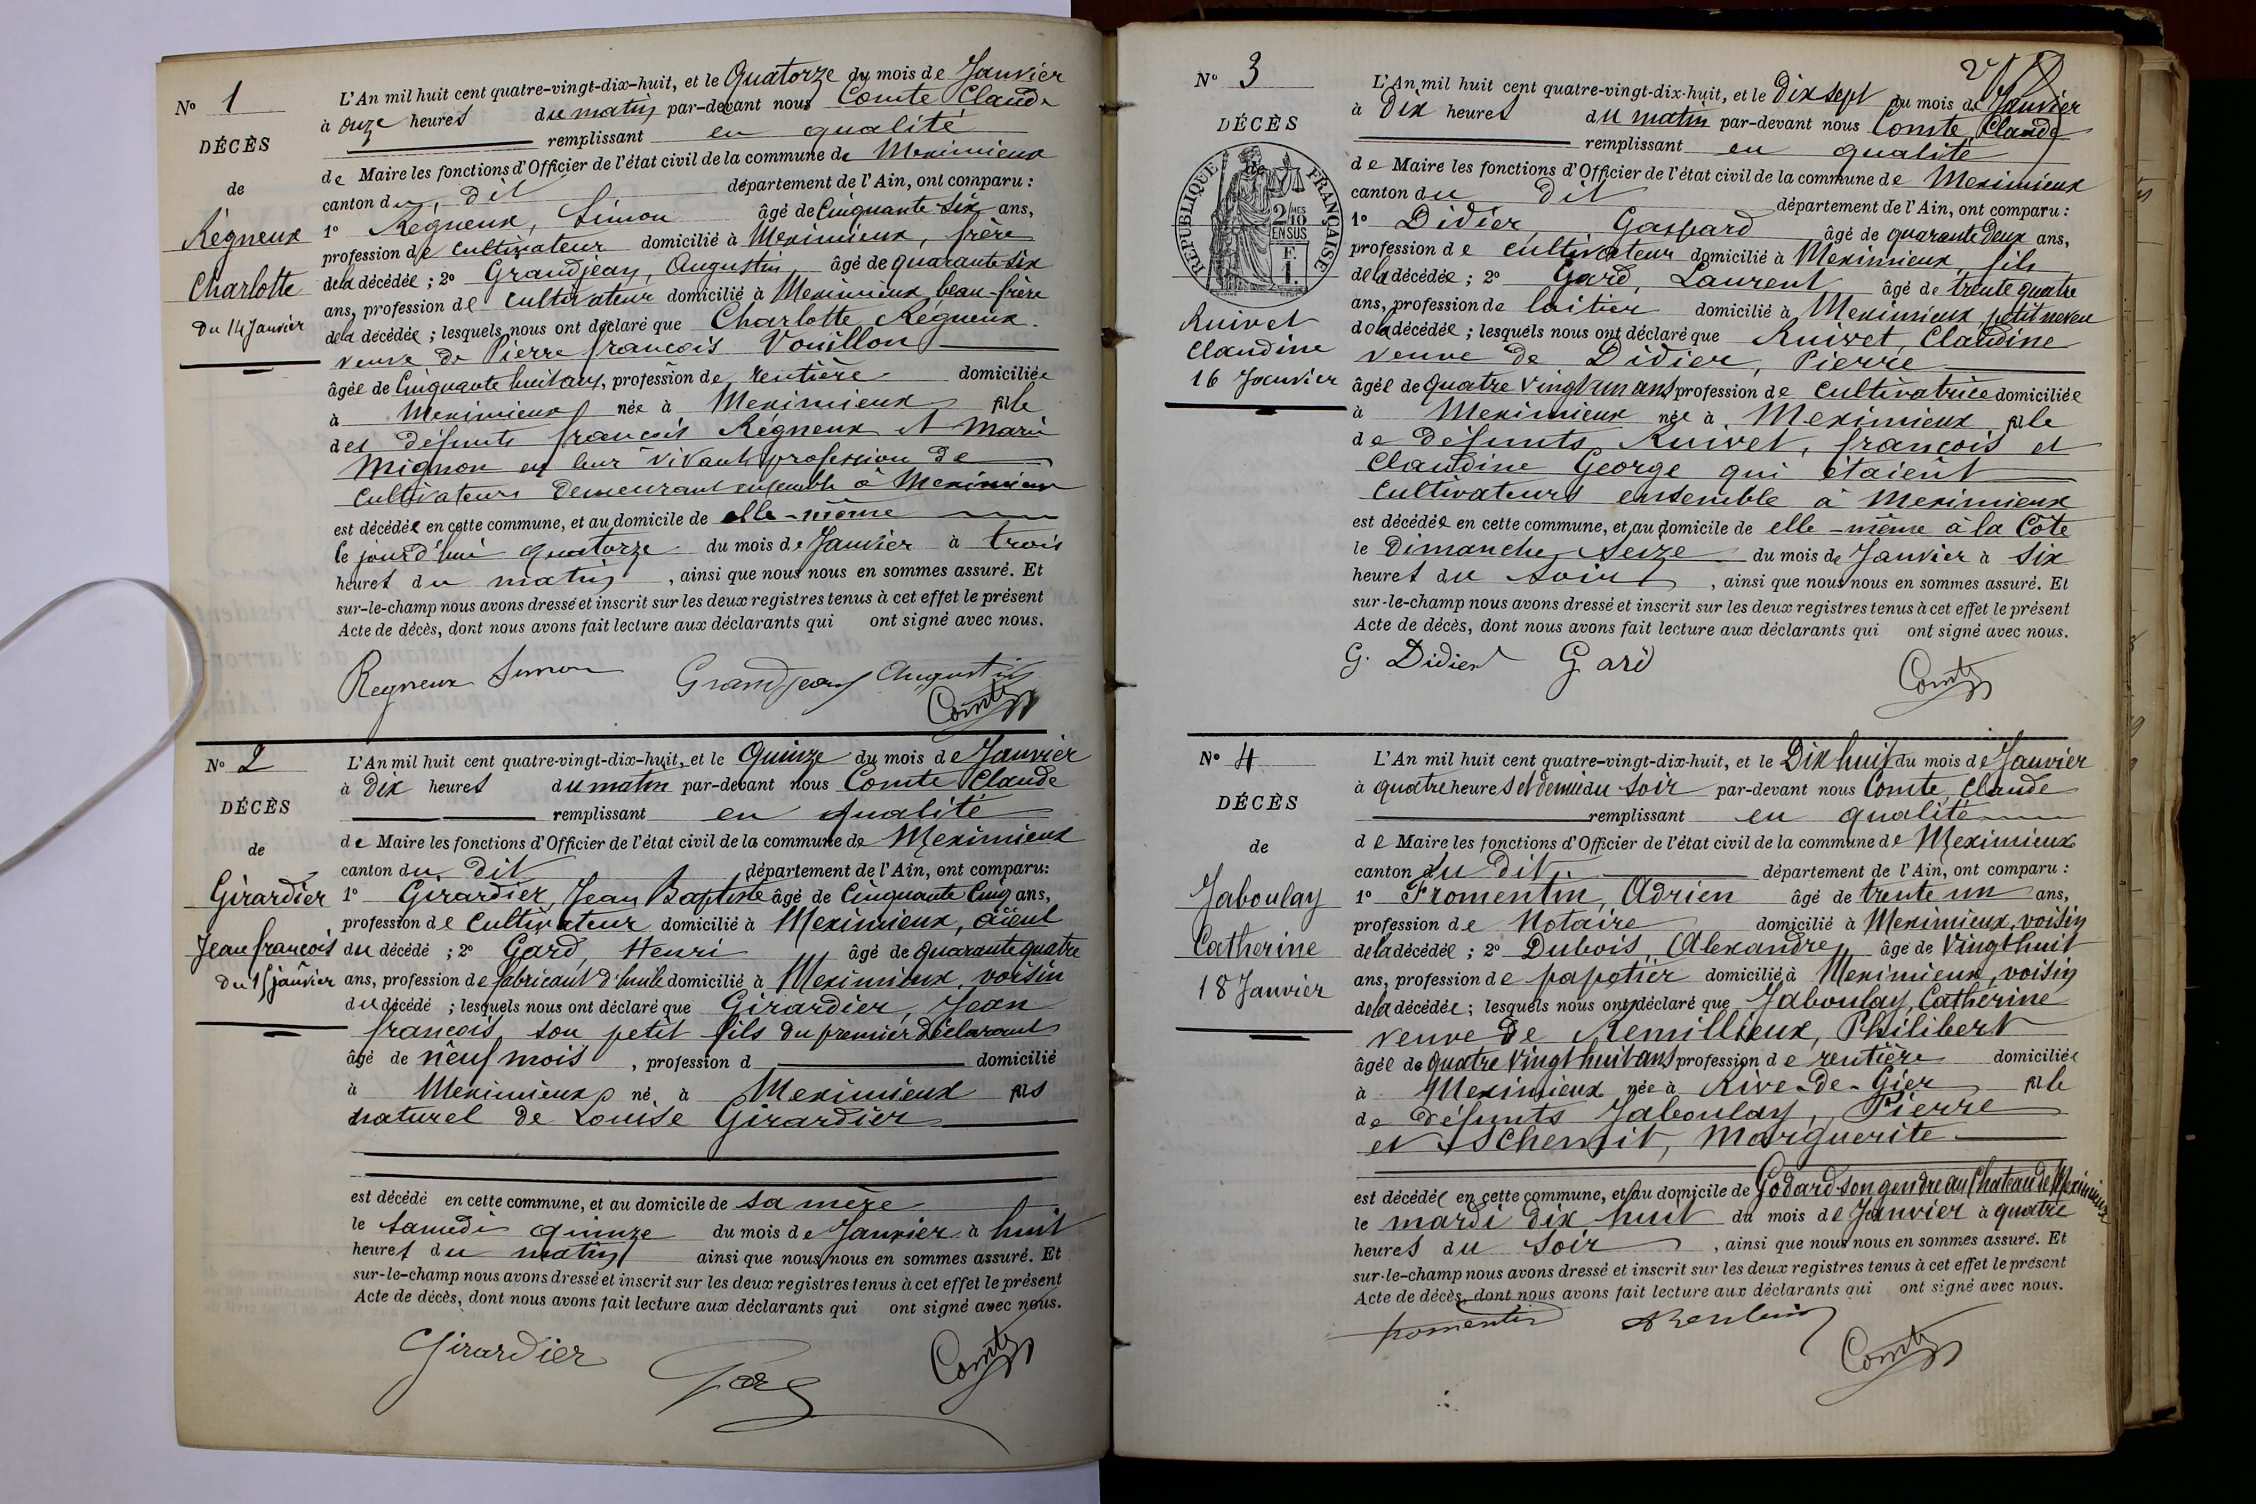 N° 1
DÉCÈS
de
Régneux
Charlotte
Du 14 Janvier
L'An mil huit cent quatre-vingt-dix-huit, et le Quatorze du mois de Janvier
à onze heures du matin par-devant nous Comte Claude
remplissant en qualité
de Maire les fonctions d'Officier de l'état civil de la commune de Meximieux
canton du dit département de l'Ain, ont comparu :
1° Régneux, Simon âgé de Cinquante Six ans,
profession de cultivateur domicilié à Meximieux, frère
de la décédée ; 2° Grandjean, Augustin âgé de quarante six
ans, profession de cultivateur domicilié à Meximieux beau-frère
de la décédée ; lesquels nous ont déclaré que Charlotte Régneux
veuve de Pierre françois Vouillon
âgée de Cinquante huit ans, profession de rentière domiciliée
à Meximieux née à Meximieux fille
des défunts françois Régneux et Marie
Mignon en leur vivant profession de
cultivateurs Demeurant ensemble à Meximieux
est décédée en cette commune, et au domicile de elle-même
le jourd'hui quatorze du mois de Janvier à trois
heures du matin, ainsi que nous nous en sommes assuré. Et
sur-le-champ nous avons dressé et inscrit sur les deux registres tenus à cet effet le présent
Acte de décès, dont nous avons fait lecture aux déclarants qui ont signé avec nous.
Regneux Simon Grandjean Augustin
Comte
N° 2
DÉCÈS
de
Girardier
Jean françois
Du 15 janvier
L'An mil huit cent quatre-vingt-dix-huit, et le Quinze du mois de Janvier
à Dix heures du matin par-devant nous Comte Claude
remplissant en qualité
de Maire les fonctions d'Officier de l'état civil de la commune de Meximieux
canton du dit département de l'Ain, ont comparu :
1° Girardier, Jean Baptiste âgé de Cinquante Cinq ans,
profession de cultivateur domicilié à Meximieux, aïeul
du décédé ; 2° Gard, Henri âgé de quarante quatre
ans, profession de fabricant d'huile domicilié à Meximieux, voisin
du décédé ; lesquels nous ont déclaré que Girardier, Jean
françois, son petit fils du premier Déclarant
âgé de neuf mois, profession d domicilié
à Meximieux né à Meximieux fils
naturel de Louise Girardier
est décédé en cette commune, et au domicile de sa mère
le samedi quinze du mois de Janvier à huit
heures du matin ainsi que nous nous en sommes assuré. Et
sur-le-champ nous avons dressé et inscrit sur les deux registres tenus à cet effet le présent
Acte de décès, dont nous avons fait lecture aux déclarants qui ont signé avec nous.
Girardier Gard Comte
2
N° 3
DÉCÈS
de
RÉPUBLIQUE FRANÇAISE
2/10MES
EN SUS
F.
1.
Ruivet
Claudine
16 Janvier
L'An mil huit cent quatre-vingt-dix-huit, et le Dix sept du mois de Janvier
à Dix heures du matin par-devant nous Comte, Claude
remplissant en qualité
de Maire les fonctions d'Officier de l'état civil de la commune de Meximieux
canton du dit département de l'Ain, ont comparu :
1° Didier, Gaspard âgé de quarante Deux ans,
profession de cultivateur domicilié à Meximieux fils
de la décédée ; 2° Gard, Laurent âgé de trente quatre
ans, profession de laitier domicilié à Meximieux petit neveu
de la décédée ; lesquels nous ont déclaré que Ruivet, Claudine
veuve de Didier, Pierre
âgée de quatre vingt un ans profession de cultivatrice domiciliée
à Meximieux née à Meximieux fille
de défunts Ruivet, françois et
Claudine George qui étaient
cultivateurs ensemble à Meximieux
est décédée en cette commune, et au domicile de elle-même à la Côte
le Dimanche Seize du mois de Janvier à six
heures du soir, ainsi que nous nous en sommes assuré. Et
sur-le-champ nous avons dressé et inscrit sur les deux registres tenus à cet effet le présent
Acte de décès, dont nous avons fait lecture aux déclarants qui ont signé avec nous.
G. Didier Gard Comte
N° 4
DÉCÈS
de
Jaboulay
Catherine
18 Janvier
L'An mil huit cent quatre-vingt-dix-huit, et le Dix huit du mois de Janvier
à quatre heures et demie du soir par-devant nous Comte, Claude
remplissant en qualité
de Maire les fonctions d'Officier de l'état civil de la commune de Meximieux
canton du Dit département de l'Ain, ont comparu :
1° Fromentin, Adrien âgé de trente un ans,
profession de Notaire domicilié à Meximieux, voisin
de la décédée ; 2° Dubois, Alexandre âgé de vingt huit
ans, profession de papetier domicilié à Meximieux, voisin
de la décédée ; lesquels nous ont déclaré que Jaboulay, Catherine
veuve de Remillieux, Philibert
âgée de quatre vingt huit ans profession de rentière domiciliée
à Meximieux née à Rive-de-Gier fille
de défunts Jaboulay, Pierre
et Schemit, Marguerite
est décédée en cette commune, et au domicile de Godard son gendre au Chateau de Meximieux
le mardi dix huit du mois de Janvier à quatre
heures du soir, ainsi que nous nous en sommes assuré. Et
sur-le-champ nous avons dressé et inscrit sur les deux registres tenus à cet effet le présent
Acte de décès, dont nous avons fait lecture aux déclarants qui ont signé avec nous.
fromentin Comte